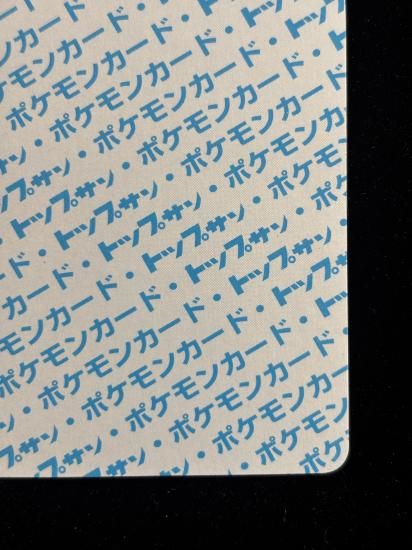 カード・トップサン
ンカード・トップサン
ケモンカード・トップ
ポケモンカード・
・ポケモンカード・
サン・ポケモンカード・
トップサン・ポケモンカード
トップサン・ポケモンカ
・トップサン・ポケモン
ド・トップサン・ポケ
カード・トップサン・
ンカード・トップサン
モンカード・トップ
ポケモンカード・
・ポケモンカード
サン・ポケモンカー
トップサン・ポケモン
・ポケモ